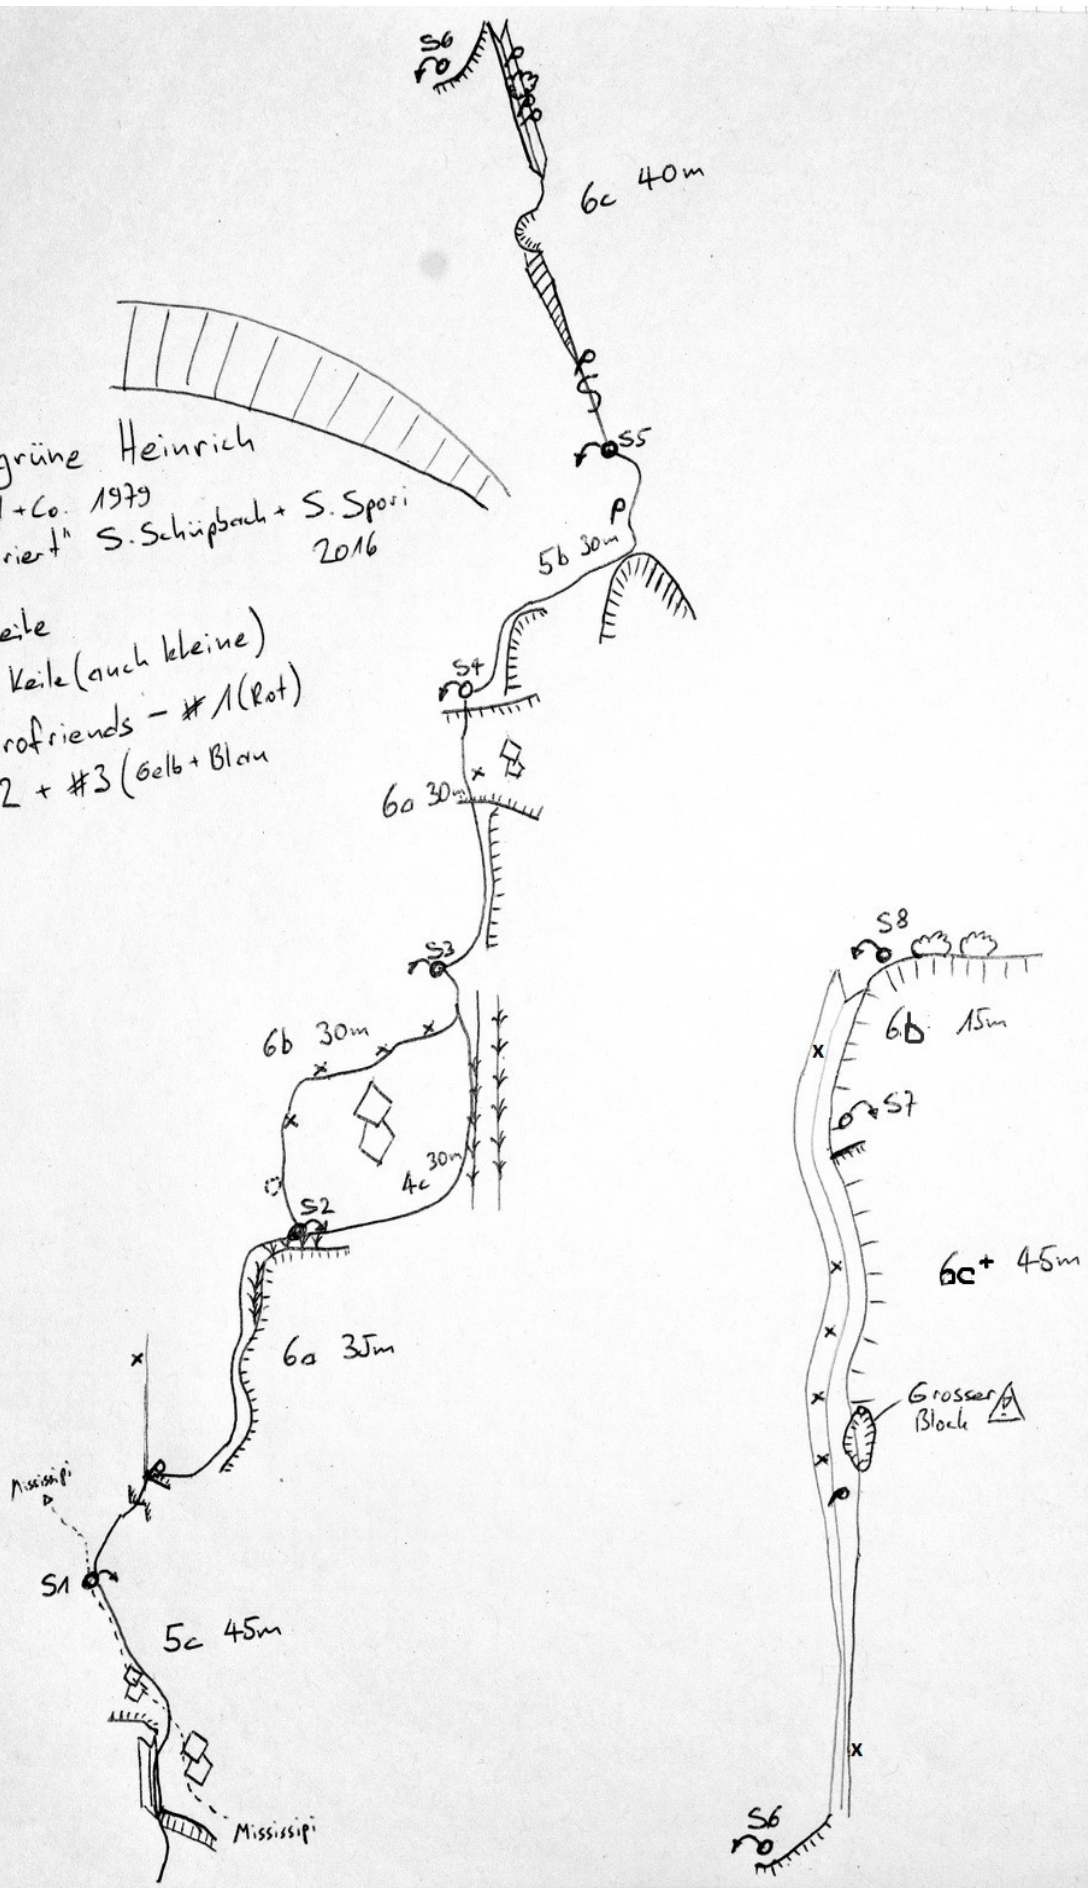 S6
6c 40m
S5
grüne Heinrich
+Co. 1979
riert" S. Schüpbach + S. Spori
2016
eile
Keile (auch kleine)
rofriends - #1 (Rot)
2 + #3 (Gelb + Blau
5b 30m
S4
6a 30m
S3
6b 30m
4c 30m
S2
6a 35m
Mississipi
S1
5c 45m
Mississipi
S8
6b 15m
S7
6c+ 45m
Grosser
Block
S6